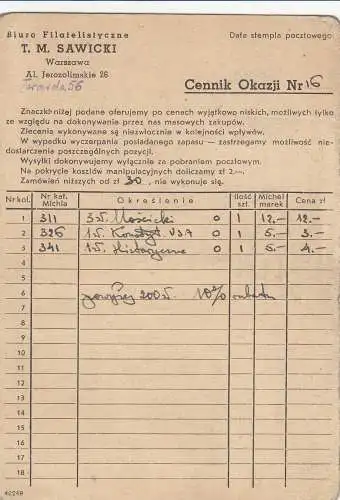 Biuro Filatelistyczne
Data stempla pocztowego
T. M. SAWICKI
Warszawa
Al. Jerozolimskie 26
Twarda 56
Cennik Okazji Nr 16
Znaczki niżej podane oferujemy po cenach wyjątkowo niskich, możliwych tylko
ze względu na dokonywanie przez nas masowych zakupów.
Zlecenia wykonywane są niezwłocznie w kolejności wpływów.
W wypadku wyczerpania posiadanego zapasu — zastrzegamy możliwość nie-
dostarczenia poszczególnych pozycji.
Wysyłki dokonywujemy wyłącznie za pobraniem pocztowym.
Na pokrycie kosztów manipulacyjnych doliczamy zł 2.—.
Zamówień niższych od zł 30, nie wykonuje się.
Nr kol. Nr kat. Michla Określenie Ilość szt. Michel marek Cena zł
1 311 3 zł. Mościcki O 1 12.— 12.—
2 326 1 zł. Konstyt USA O 1 5.— 3.—
3 341 1 zł. Historyczne O 1 5.— 4.—
4
5
6 powyżej 200 zł. 10% rabatu
7
8
9
10
11
12
13
14
15
16
17
18
42248